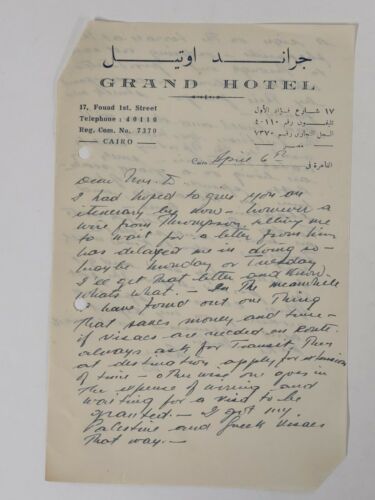 جرانـــد اوتيـــل
GRAND HOTEL
17, Fouad 1st. Street
Telephone : 40110
Reg. Com. No. 7370
CAIRO
١٧ شارع فؤاد الأول
تليفون رقم ٤٠١١٠
السجل التجارى رقم ٧٣٧٠
مصر
Cairo April 6th القاهرة فى
Dear Mrs.
I had hoped to give you an
itenerary by now - however a
wire from Thompson telling me
to wait for a letter from him
has delayed me in doing so -
maybe Monday or Tuesday
I'll get that letter and know
whats what. - In the meanwhile
I have found out one thing
that saves money and time -
if visaes are needed en route
always ask for Transit, then
at destination apply for extension
of time - otherwise one goes in
the expense of wiring and
waiting for a visa to be
granted. - I got my
Palestine and Greek visaes
that way. -